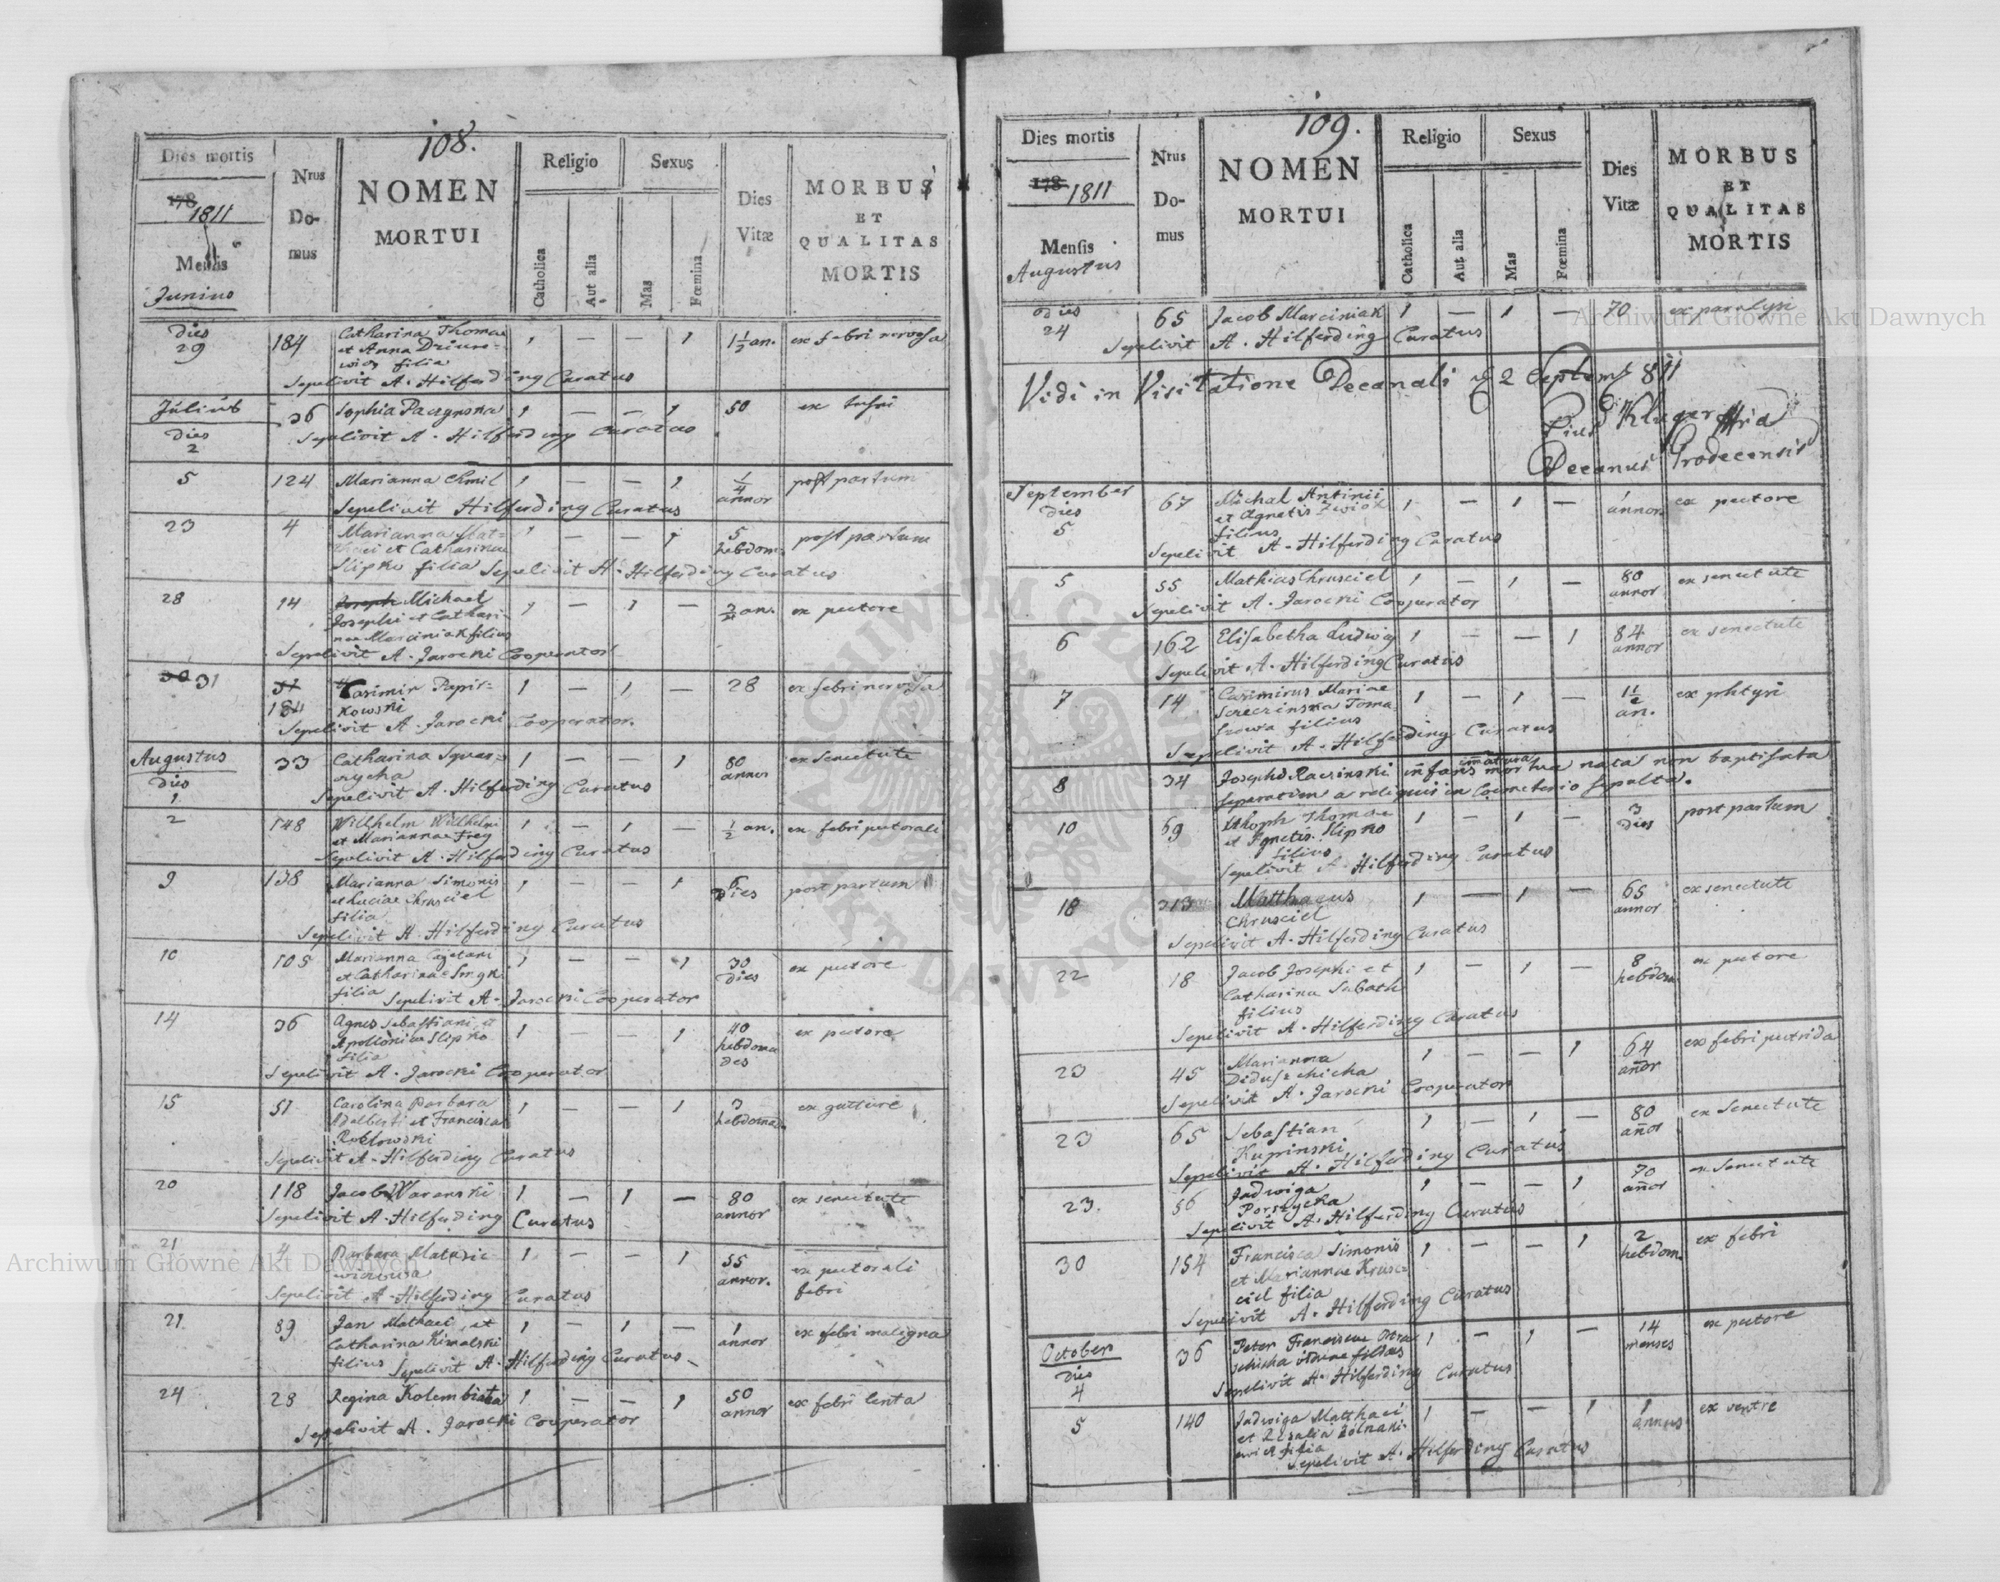 108.
Dies mortis
178 1811
Mensis
Junius
Nrus
Do-
mus
NOMEN
MORTUI
Religio
Catholica
Aut alia
Sexus
Mas
Fœmina
Dies
Vitæ
MORBUS
ET
QUALITAS
MORTIS
dies 29 184 Catharina Thomae 1 — — 1 1½ an. ex febri nervosa
et Anna
filia
Sepelivit A. Hilferding Curatus
Julius 36 Sophia 1 — — 1 50 ex
dies
2
Sepelivit A. Hilferding Curatus
5 124 Marianna Chmil 1 — — 1 1/4 annor post partum
Sepelivit Hilferding Curatus
23 4 Marianna 1 — — 1 5 hebdom post partum
et Catharinae
Slipko filia Sepelivit A. Hilferding Curatus
28 14 Joseph Michael 1 — 1 — an. ex pectore
Josephi et Cathari-
nae Marciniak filius
Sepelivit A. Jarocki Cooperator
30 31 184 Casimir Papir- 1 — 1 — 28 ex febri nervosa
kowski
Sepelivit A. Jarocki Cooperator.
Augustus 33 Catharina 1 — — 1 80 annor ex senectute
dies
1
Sepelivit A. Hilferding Curatus
2 148 Wilhelm Wilhelmi 1 — 1 — ½ an. ex febri pectorali
et Mariannae Frey
Sepelivit A. Hilferding Curatus
9 138 Marianna Simonis 1 — — 1 dies post partum
et Luciae Chrusciel
filia
Sepelivit A. Hilferding Curatus
10 105 Marianna Cajetani 1 — — 1 30 dies ex pectore
et Catharinae
filia Sepelivit A. Jarocki Cooperator
14 36 Agnes Sebastiani et 1 — — 1 40 hebdomades ex pectore
Apolloniae Slipko
filia
Sepelivit A. Jarocki Cooperator
15 51 Carolina Barbara 1 — — 1 3 hebdomad. ex gutture
Adalberti et Franciscae
Sepelivit A. Hilferding Curatus
20 118 Jacob Waranski 1 — 1 — 80 annor ex senectute
Sepelivit A. Hilferding Curatus
21 4 Barbara 1 — — 1 55 annor. ex pectorali
febri
Sepelivit A. Hilferding Curatus
21. 89 Jan Mathaei et 1 — 1 — 1 annor ex febri maligna
Catharina
filius Sepelivit A. Hilferding Curatus
24 28 Regina Kolembiata 1 — — 1 50 annor ex febri lenta
Sepelivit A. Jarocki Cooperator
109.
Dies mortis
178 1811
Mensis
Augustus
Nrus
Do-
mus
NOMEN
MORTUI
Religio
Catholica
Aut alia
Sexus
Mas
Fœmina
Dies
Vitæ
MORBUS
ET
QUALITAS
MORTIS
dies 24 65 Jacob Marciniak 1 — 1 — 70 ex paralysi
Sepelivit A. Hilferding Curatus
Vidi in Visitatione Decanali d 2 Septemb 811
Pius Kluger
Decanus Grodecensis
September 67 Michal Antonii 1 — 1 — annor. ex pectore
dies
5
et Agnetis
filius
Sepelivit A. Hilferding Curatus
5 55 Mathias Chrusciel 1 — 1 — 80 annor ex senectute
Sepelivit A. Jarocki Cooperator
6 162 Elisabetha Ludwig 1 — — 1 84 annor ex senectute
Sepelivit A. Hilferding Curatus
7 14 Casimirus Mariae 1 — 1 — an. ex phtysi
filius
Sepelivit A. Hilferding Curatus
8 34 Josephi Raczinski infans immatura mortua nata non baptisata
separatim a reliquis in Coemeterio sepulta.
10 69 Thomae 1 — 1 — 3 dies post partum
et Agnetis Slipko
filius
Sepelivit A. Hilferding Curatus
18 213 Matthaeus 1 — 1 — 65 annor ex senectute
Chrusciel
Sepelivit A. Hilferding Curatus
22 18 Jacob Josephi et 1 — 1 — 8 hebdom. ex pectore
Catharina Sabath
filius
Sepelivit A. Hilferding Curatus
23 45 Marianna 1 — — 1 64 annor ex febri putrida
Sepelivit A. Jarocki Cooperator
23 65 Sebastian 1 — 1 — 80 annor ex Senectute
Kupinski
Sepelivit A. Hilferding Curatus
23. 56 Jadwiga 1 — — 1 70 annor ex Senectute
Sepelivit A. Hilferding Curatus
30 154 Francisca Simonis 1 — — 1 2 hebdom. ex febri
et Mariannae Krus-
ciel filia
Sepelivit A. Hilferding Curatus
October 36 Peter Franciscae 1 — 1 — 14 menses ex pectore
dies
4
Sepelivit A. Hilferding Curatus
5 140 Jadwiga Matthaei 1 — — 1 1 annus ex ventre
et Rosalia
filia
Sepelivit A. Hilferding Curatus
Archiwum Główne Akt Dawnych
Archiwum Główne Akt Dawnych
ARCHIWUM GŁÓWNE AKT DAWNYCH